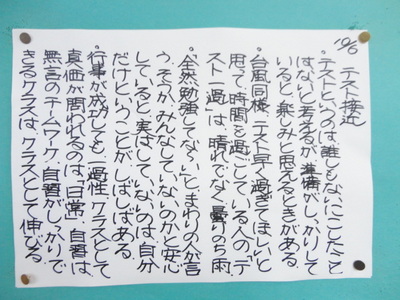 10/6
テスト接近
・テストというのは、誰しもないにこしたことは
ないと考えるが、準備がしっかりして
いると、楽しみと思えるときがある。
・台風同様、テスト早く過ぎてほしいと
思って、時間を過ごしている人の「テ
スト一過」は、晴れでなく曇りのち雨
・「全然勉強してな〜い」と、まわりの人が言
う。そうか、みんなしていないのかと安心
していると、実はしていないのは、自分
だけということがしばしばある。
・行事が成功しても一過性、クラスとして
真価が問われるのは、「日常」自習は、
無言のチームワーク。自習がしっかりで
きるクラスは、クラスとして伸びる